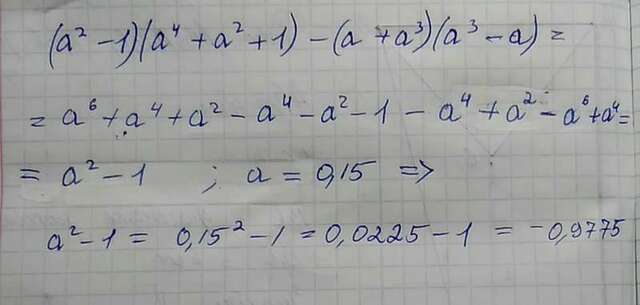 (a² − 1)(a⁴ + a² + 1) − (a + a³)(a³ − a) =
= a⁶ + a⁴ + a² − a⁴ − a² − 1 − a⁴ + a² − a⁶ + a⁴ =
= a² − 1 ; a = 0,15 =>
a² − 1 = 0,15² − 1 = 0,0225 − 1 = −0,9775